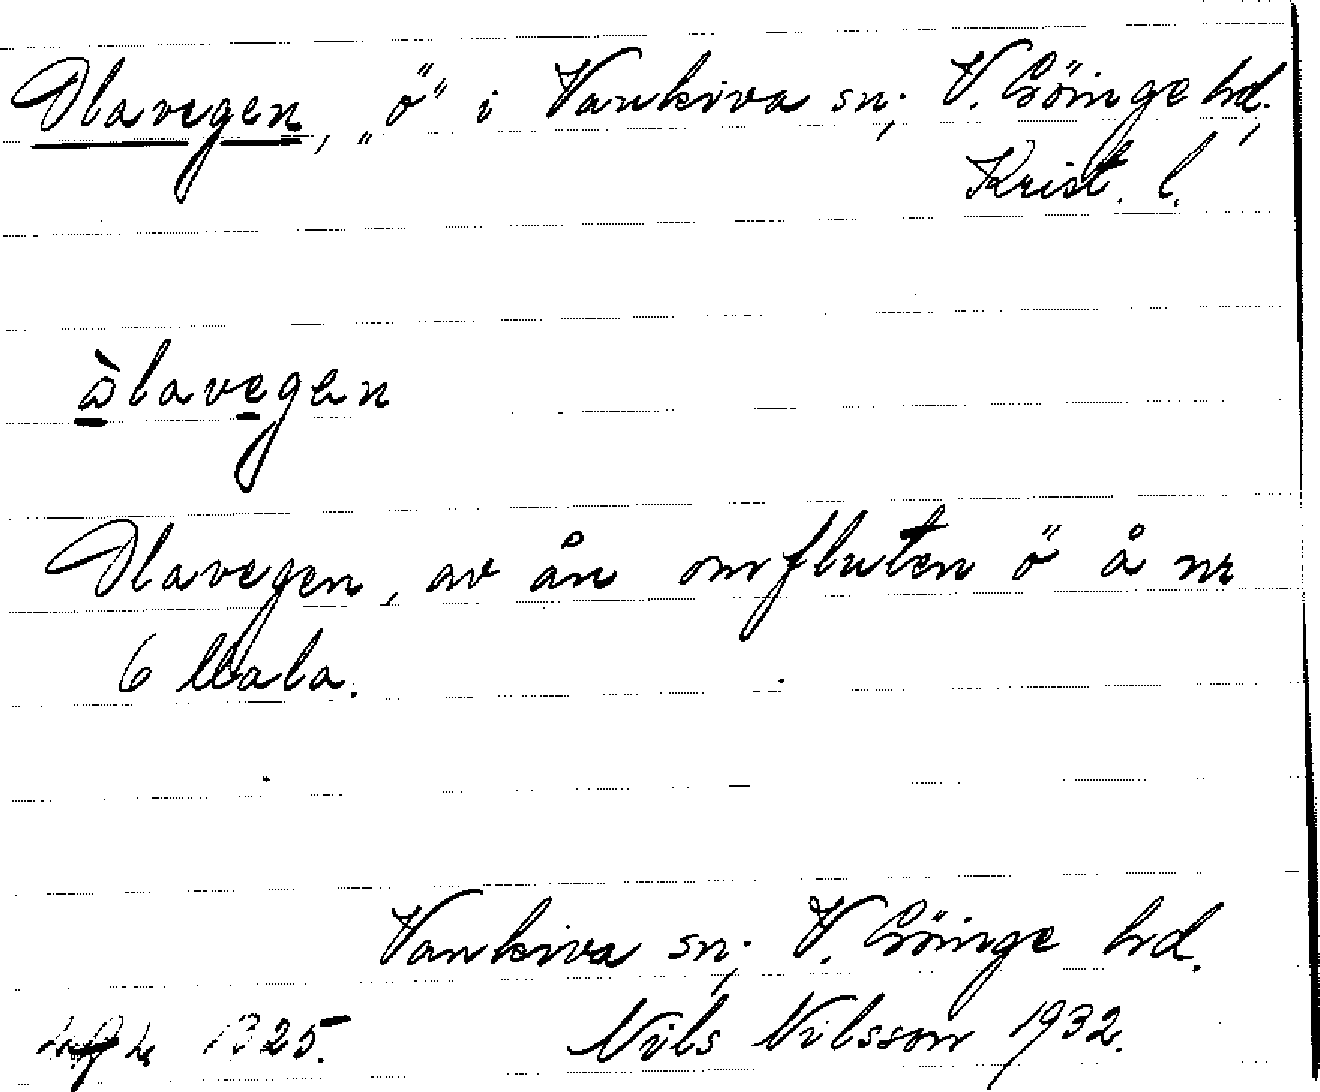 Olavegen, „ö“ i Vankiva sn; V. Göinge hd.,
Krist. l.
àlavegen
Olavegen, av ån omfluten ö å nr
6 Mala.
Vankiva sn; V. Göinge hd.
1325. Nils Nilsson 1932.